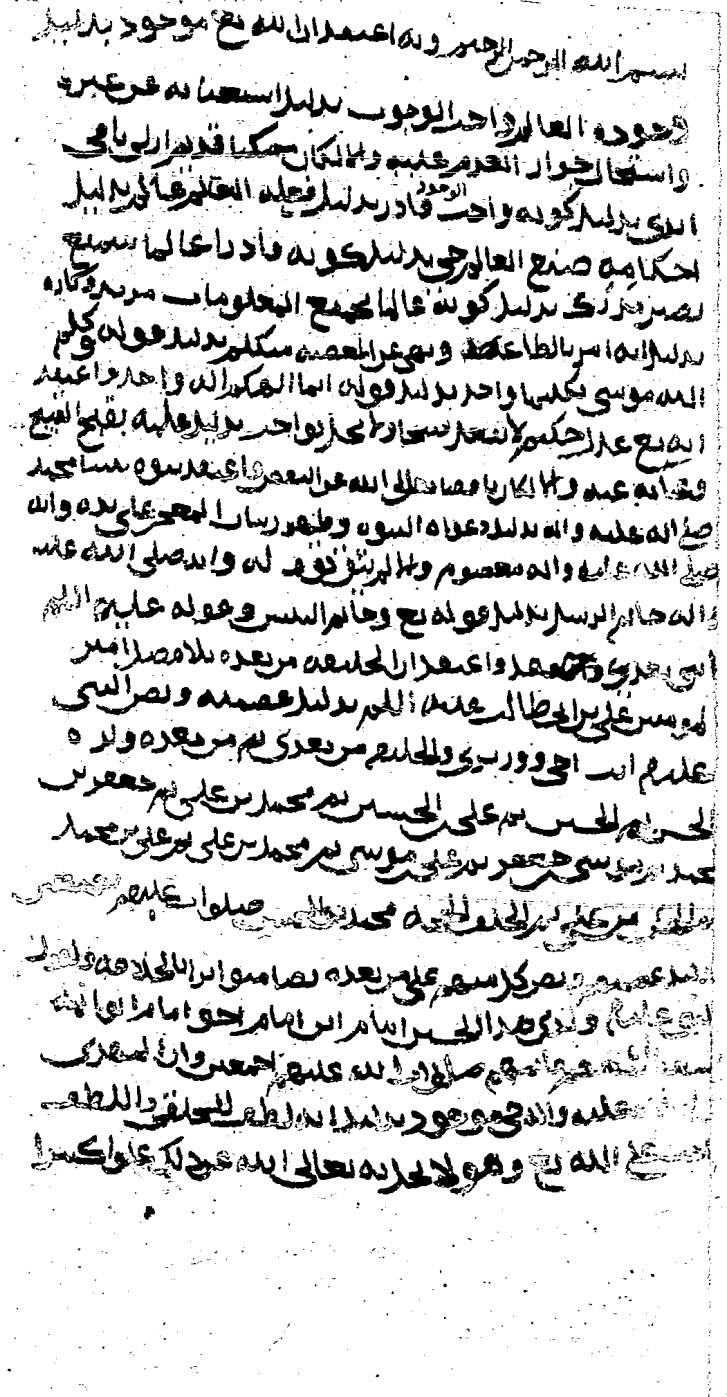 بسم الله الرحمن الرحيم وبه اعتقد ان الله تع موجود بدليل
وجوده العالم واجب الوجوب بدليل استغنائه عن غيره
واستحال جواز العدم عليه والا لكان ممكنا قديم ازلي باقي
ابدي بدليل كونه واجب الوجود قادر بدليل فعله العالم عالم بدليل
احكامه صنع العالم حي بدليل كونه قادرا عالما سميع
بصير مدرك بدليل كونه عالما بجميع المعلومات مريد وكاره
بدليل انه امر بالطاعة ونهى عن المعصية متكلم بدليل قوله وكلم
الله موسى تكليما واحد بدليل قوله انما الهكم اله واحد واعتقد
انه تع عدل حكيم لا يفعل قبيحا ولا يخل بواجب بدليل علمه بقبح القبيح
وغنائه عنه والا لكان ناقصا تعالى الله عن النقص واعتقد نبوة نبينا محمد
صلى الله عليه واله بدليل دعواه النبوة وظهور المعجز على يده وانه
صلى الله عليه واله معصوم والا لم يثق بقوله وانه صلى الله عليه
واله خاتم الرسل بدليل قوله تع وخاتم النبيين وقوله عليه السلم
نبي بعدي واعتقد ان الخليفة من بعده بلا فصل امير
المومنين علي بن ابي طالب عليه السلم بدليل عصمته ونص النبي
عليه انت اخي ووزيري والخليفة من بعدي ثم من بعده ولده
الحسن ثم الحسين ثم علي بن الحسين ثم محمد بن علي ثم جعفر بن
محمد ثم موسى بن جعفر ثم علي بن موسى ثم محمد بن علي ثم علي بن محمد
ثم الحسن بن علي ثم الخلف الحجة محمد بن الحسن صلوات عليهم
بدليل عصمتهم ونص كل منهم على من بعده نصا متواترا بالخلافة
ولدي هذا الحسين امام ابن امام اخو امام ابو ائمة
تسعة صلوات الله عليهم اجمعين وان المهدي
عليه والله حي موجود بدليل انه لطف للخلق واللطف
على الله تع وهو لا يخل به تعالى الله عن ذلك علوا كبيرا